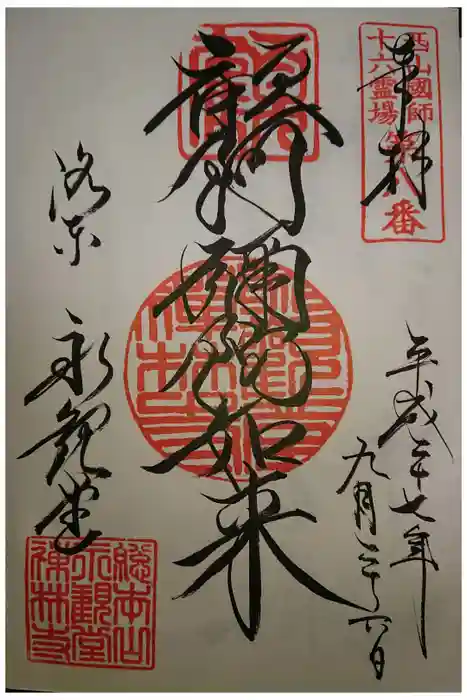 西山國師
十六霊場
第八番
奉拝
平成二十七年
九月二十六日
顧阿彌陀如来
洛東 永観堂
總本山
永觀堂
禪林寺